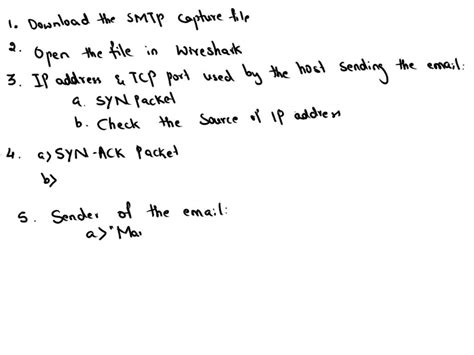 1. Download the SMTP capture file
2. Open the file in Wireshark
3. IP address & TCP port used by the host sending the email:
a. SYN Packet
b. Check the Source of IP address
4. a) SYN-ACK Packet
b)
5. Sender of the email:
a) "Mai